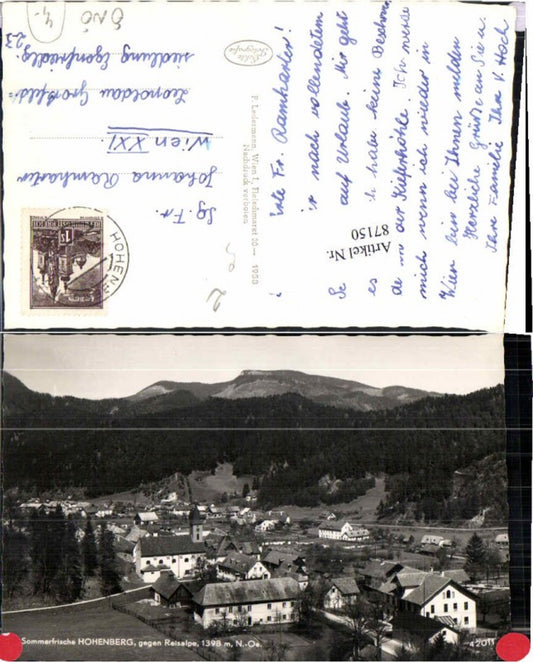 Liebe Fr. Ramharter!
nach vollendetem
auf Urlaub. Mir geht
es habe keine Beschwer
den an der Kieferhöhle. Ich
mich wenn ich wieder in
Wien bin bei Ihnen melden
Herzliche Grüße an Sie u.
Ihre Familie Ihre V. Hoch
Artikel Nr.
87150
P. Ledermann, Wien I, Fleischmarkt 20 — 1958
Nachdruck verboten
HOHENB
Sg. Fr.
Johanna Ramharter
Wien XXI
Leopoldau Großfeld=
siedlung Egonfriedlg.
23
ÖNÖ
4,-
2
50
Sommerfrische HOHENBERG, gegen Reisalpe, 1398 m, N.-Oe.